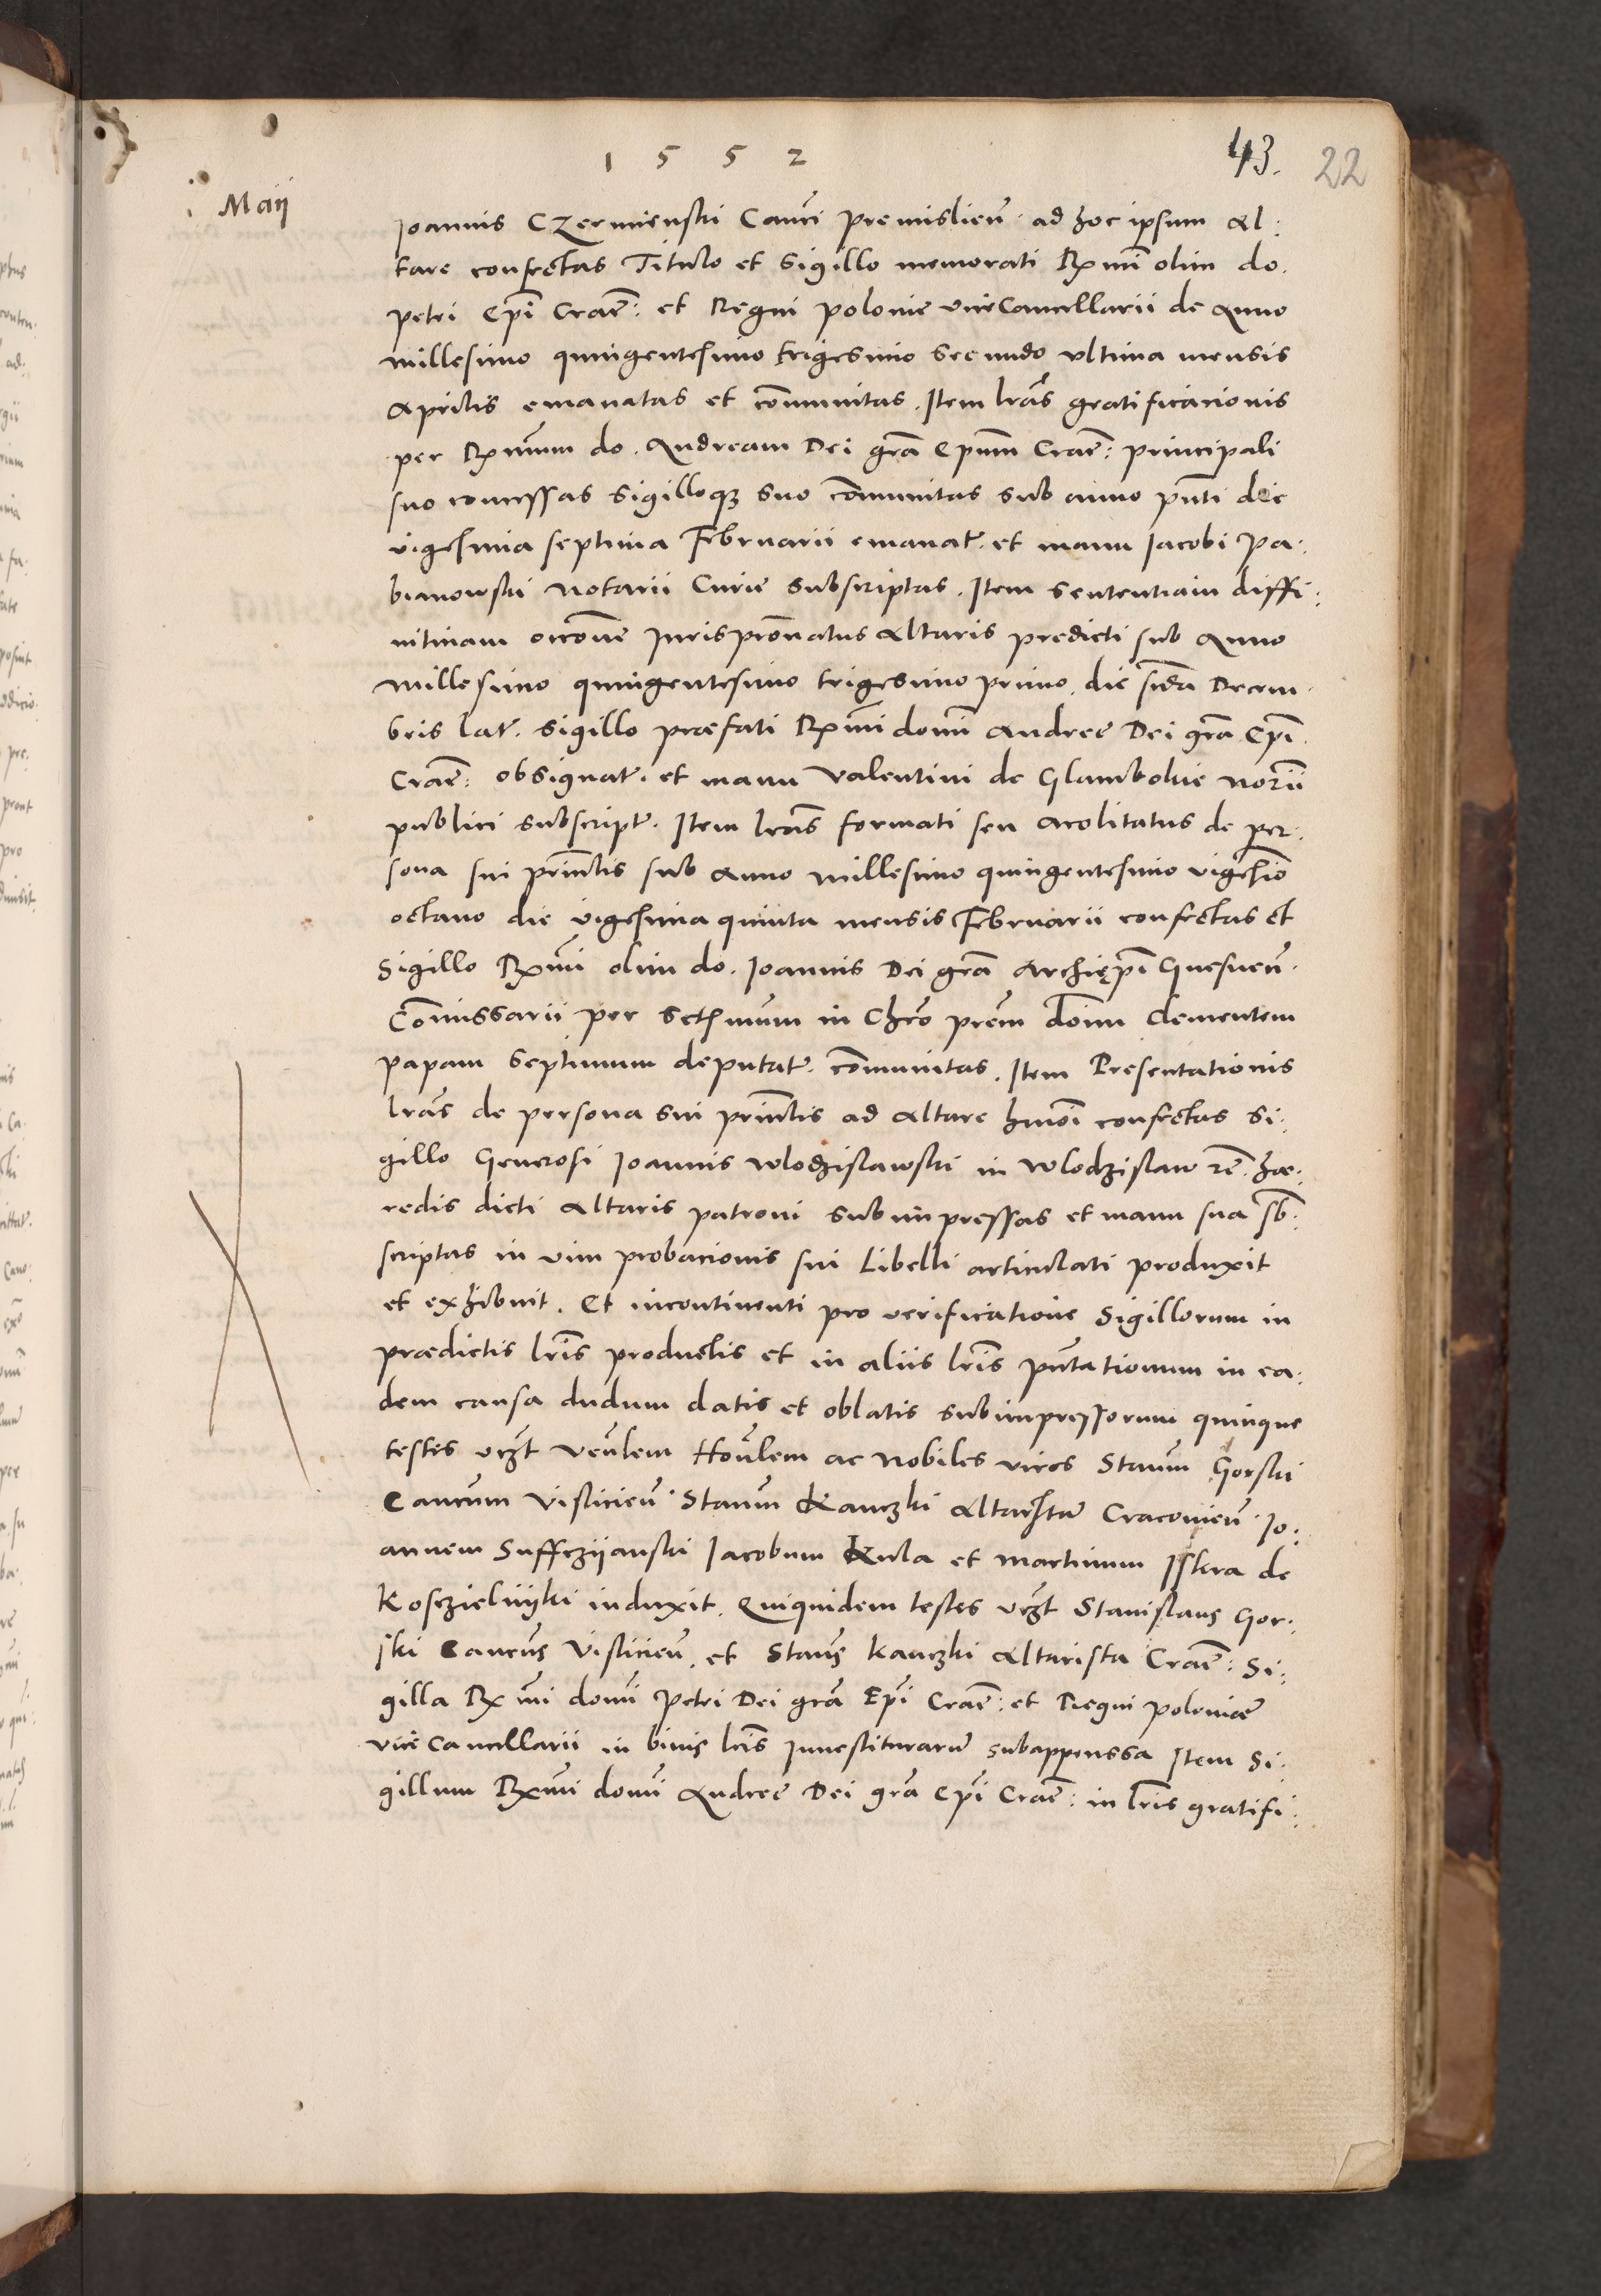 1 5 5 2
43. 22
Maij
Joannis Czermienski Canci Premislien̄ ad hoc ipsum Al:
tare confectas Titulo et Sigillo memorati Rxmi olim do.
Petri Epi Crace: et Regni Polonie viceCancellarii de Anno
millesimo quingentesimo trigesimo secundo vltima mensis
Aprilis emanatas et communitas. Item lras gratificacionis
per Rxmum do. Andream Dei gra Epum Crace: principali
suo concessas sigilloqz suo communitas sub anno pnti die
vigesima septima Februarii emanat. et manu Jacobi Pa:
bianowski Notarii Curie subscriptas. Item sententiam diffi:
nitiuam occone Jurispronatus Altaris predicti sub Anno
millesimo quingentesimo trigesimo primo, die scda Decem:
bris lat. sigillo præfati Rxmi domi Andree Dei gra Epi
Crace: obsignat. et manu Valentini de Glambokie norii
publici subscript. Item lras formati seu Acolitatus de per:
sona sui prinlis sub Anno millesimo quingentesimo vigesio
octauo die vigesima quinta mensis Februarii confectas et
Sigillo Rxmi olim do. Joannis Dei gra Archiępi Gnesnen̄.
Comissarii per Sctssmum in Chro prem domi Clementem
papam septimum deputat. communitas. Item Presentationis
lras de persona sui prinlis ad Altare hmoi confectas Si:
gillo Generosi Joannis Wlodzislawski in Wlodzislaw ze. hæ:
redis dicti Altaris patroni subimpressas et manu sua sb:
scriptas in vim probacionis sui Libelli articulati produxit
et exhibuit. Et incontinenti pro verificatione Sigillorum in
prædictis lris productis et in aliis lris pntationum in ea:
dem causa dudum datis et oblatis subimpressorum quinque
testes vrzt Venlem Honlem ac Nobiles viros Stanm Gorski
Cancum Vislicien̄ Stanm Kanczki Altaristam Cracovien̄ Jo:
annem Suffczijanski Jacobum Kula et Martinum Iskra de
Kosczielnijki induxit. Quiquidem testes vrzt Stanislaus Gor:
ski Cancus Vislicien̄. et Stans Kanczki Altarista Crace: Si:
gilla Rxmi domi Petri Dei gra Epi Crace: et Regni Poloniæ
vice Cancellarii in binis lris Inuestiturarum subappenssa Item Si:
gillum Rxmi domi Andree Dei gra Epi Crace: in lris gratifi: